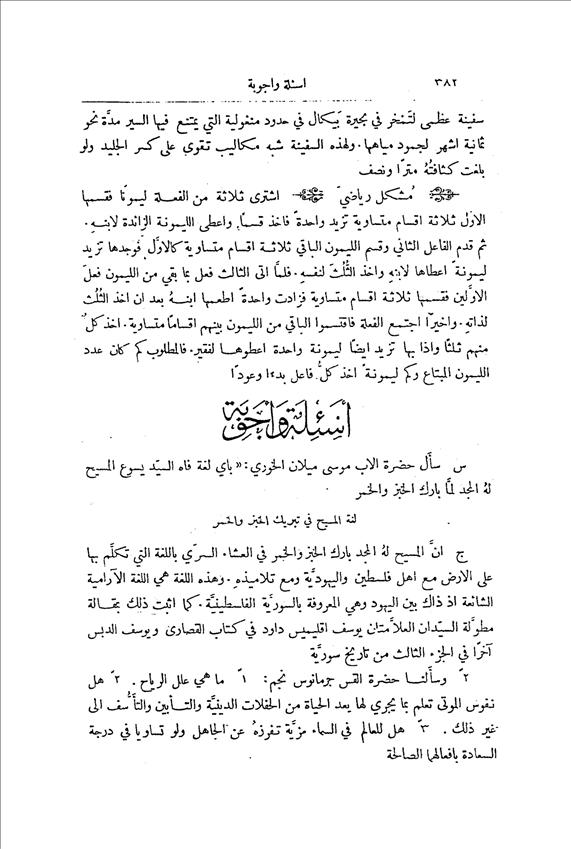 ٣٨٢ اسئلة واجوبة
سفينة عظمى لتمخر في بحيرة بيكال في حدود منغولية التي يمتنع فيها السير مدَّة نحو
ثمانية اشهر لجمود مياهها. ولهذه السفينة شبه مكاليب تقوى على كسر الجليد ولو
بلغت كثافتُهُ مترًا ونصف
مُشكل رياضيّ اشترى ثلاثة من الفعلة ليمونًا فقسمها
الاوَّل ثلاثة اقسام متساوية تزيد واحدةً فاخذ قسمًا واعطى الليمونة الزائدة لابنهِ.
ثم قدم الفاعل الثاني وقسم الليمون الباقي ثلاثة اقسام متساوية كالاوَّل فوجدها تزيد
ليمونةً اعطاها لابنهِ واخذ الثُلثَ لنفسهِ. فلمَّا اتى الثالث فعل بما بقي من الليمون فعلَ
الاوَّلين فقسمها ثلاثة اقسام متساوية فزادت واحدةً اطعمها ابنهُ بعد ان اخذ الثُلث
لذاتهِ. واخيرًا اجتمع الفعلة فاقتسموا الباقي من الليمون بينهم اقسامًا متساوية. اخذ كلٌ
منهم ثلثًا واذا بها تزيد ايضًا ليمونة واحدة اعطوها لفقير. فالمطلوب كم كان عدد
الليمون المبتاع وكم ليمونةً اخذ كلُّ فاعل بدءًا وعودًا
أسئلة وأجوبة
س سأل حضرة الاب موسى ميلان الخوري: «باي لغة فاه السيّد يسوع المسيح
لهُ المجد لمَّا بارك الخبز والخمر
لغة المسيح في تبريك الخبز والخمر
ج انَّ المسيح لهُ المجد بارك الخبز والخمر في العشاء السرّي باللغة التي تكلَّم بها
على الارض مع اهل فلسطين واليهوديَّة ومع تلاميذهِ. وهذه اللغة هي اللغة الآرامية
الشائعة اذ ذاك بين اليهود وهي المعروفة بالسوريَّة الفلسطينيَّة. كما اثبت ذلك بمقالة
مطوَّلة السيّدان العلاَّمتان يوسف اقليميس داود في كتاب القصارى ويوسف الدبس
آخرًا في الجزء الثالث من تاريخ سوريَّة
٢ً وسألنا حضرة القس جرمانوس نجم: ١ً ما هي علل الرياح. ٢ً هل
نفوس الموتى تعلم بما يجري لها بعد الحياة من الحفلات الدينيَّة والتآبين والتأسُّف الى
غير ذلك. ٣ً هل للعالم في السماء مزيَّة تفرزهُ عن الجاهل ولو تساويا في درجة
السعادة بافعالهما الصالحة